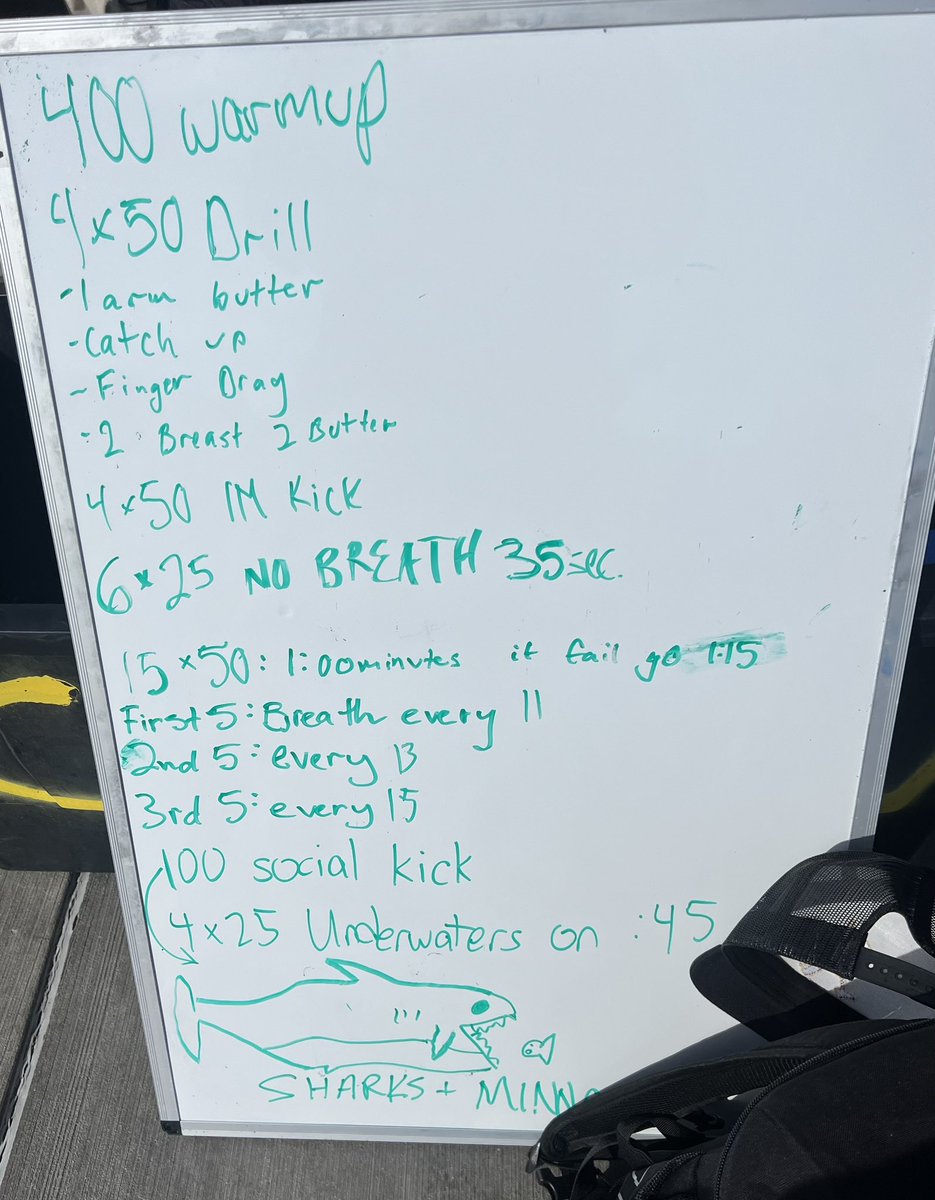 400 warmup
4x50 Drill
-1 arm butter
-Catch up
-Finger Drag
-2 Breast 2 Butter
4x50 IM Kick
6x25 NO BREATH 35sec.
15x50: 1:00minutes if fail go 1:15
First 5: Breath every 11
2nd 5: every 13
3rd 5: every 15
100 social kick
4x25 Underwaters on :45
SHARKS + MINN